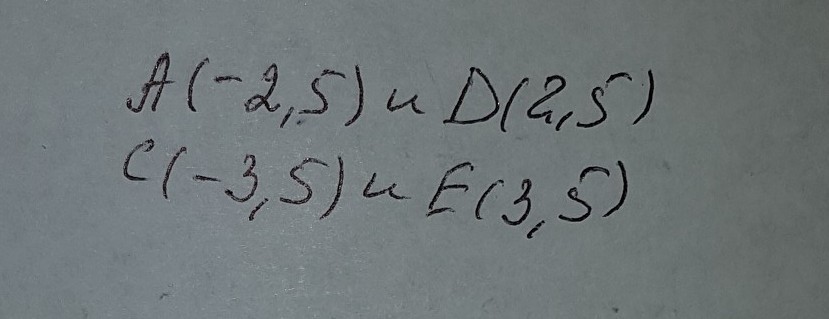 A(-2,5) и D(2,5)
C(-3,5) и E(3,5)